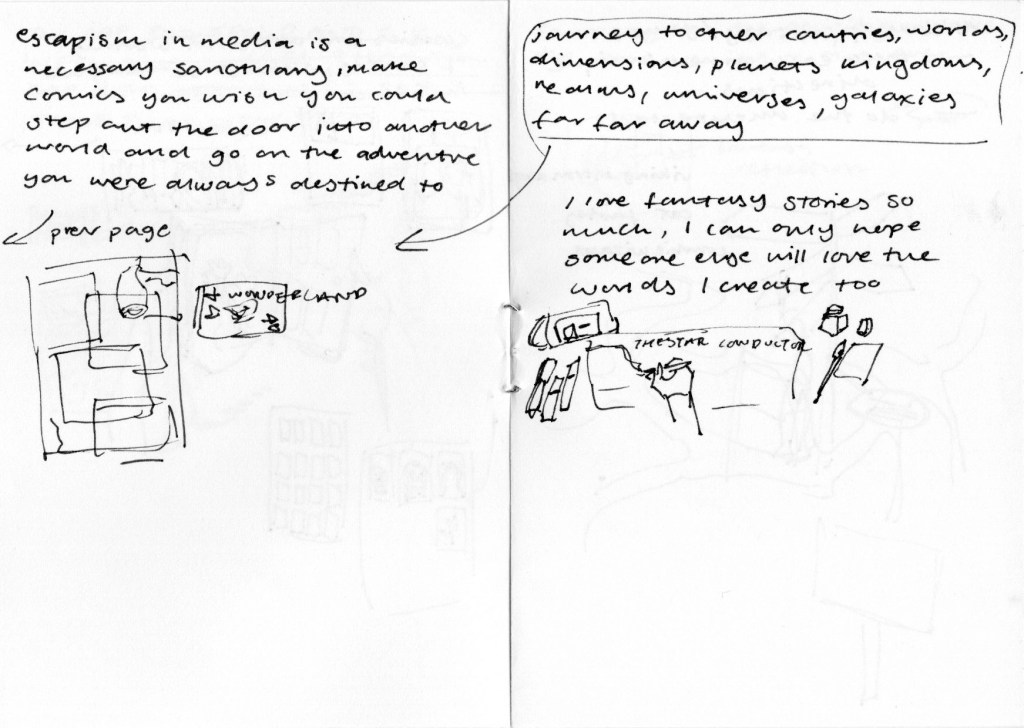 escapism in media is a
necessary sanctuary, make
comics you wish you could
step out the door into another
world and go on the adventure
you were always destined to
prev page
WONDERLAND
journey to other countries, worlds,
dimensions, planets kingdoms,
realms, universes, galaxies
far far away
I love fantasy stories so
much, I can only hope
someone else will love the
worlds I create too
THE STAR CONDUCTOR